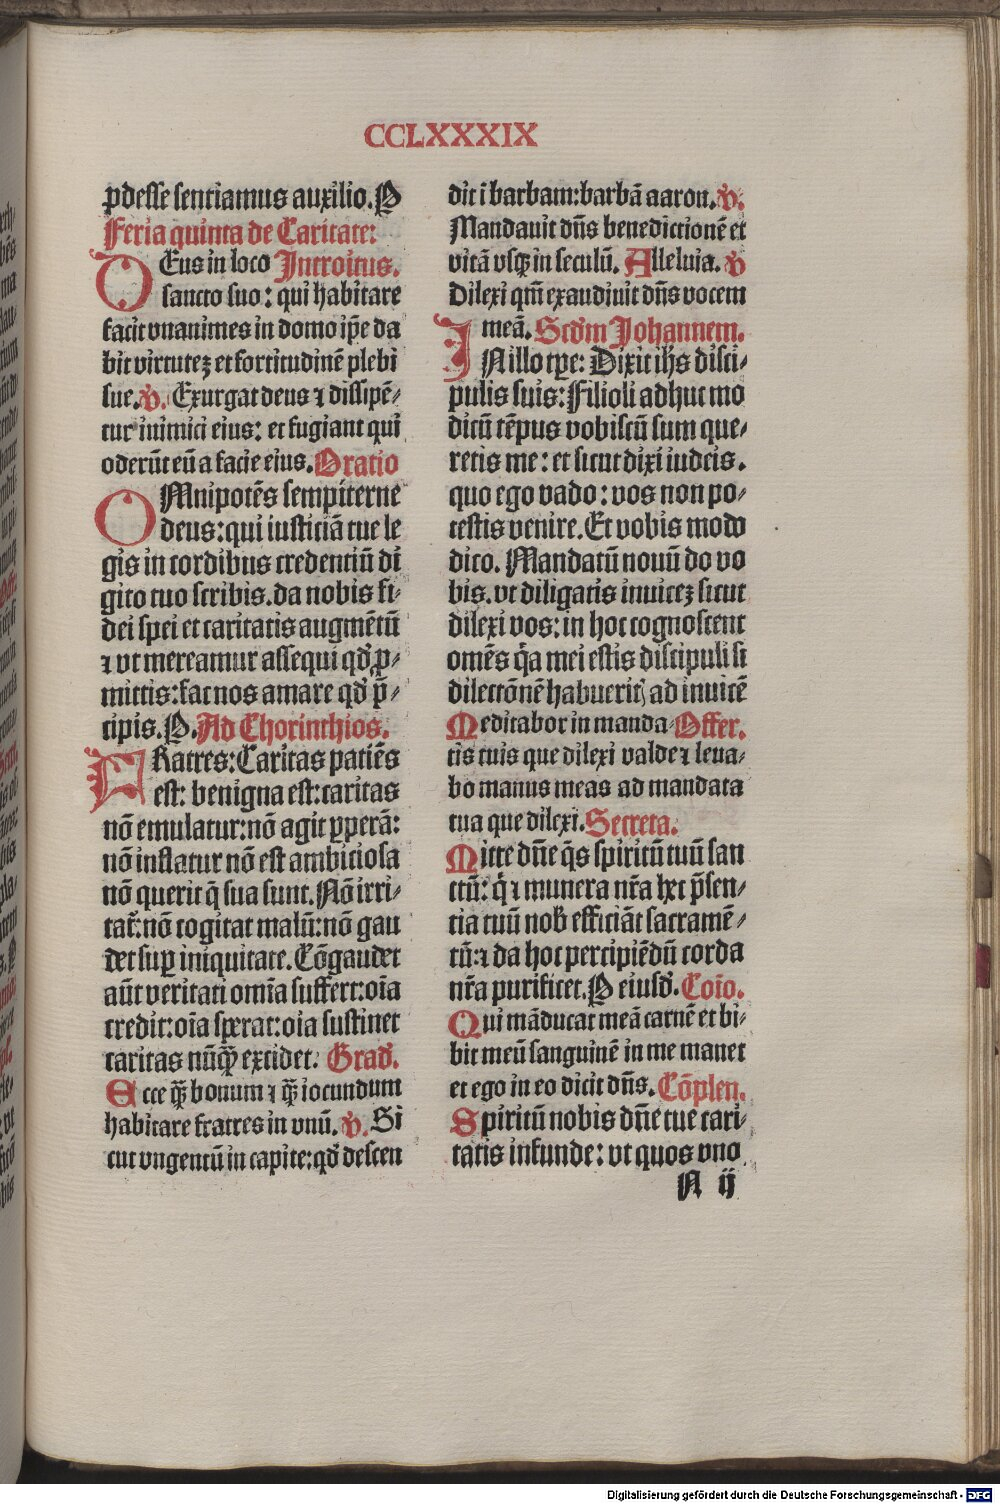 CCLXXXIX
ꝓdesse sentiamus auxilio. P
Feria quinta de Caritate:
DEus in loco Introitus.
sancto suo: qui habitare
facit vnanimes in domo ip̄e da
bit virtutez et fortitudinē plebi
sue. v̄. Exurgat deus ⁊ dissipē-
tur inimici eius: et fugiant qui
oderūt eū a facie eius. Oratio
OMnipotēs sempiterne
deus: qui iusticiā tue le
gis in cordibus credentiū di
gito tuo scribis. da nobis fi-
dei spei et caritatis augmētū
⁊ vt mereamur assequi qd̛ ꝓ-
mittis: fac nos amare qd̛ p̄-
cipis. P. Ad Chorinthios.
FRatres: Caritas patiēs
est: benigna est: caritas
nō emulatur: nō agit ꝑperā:
nō inflatur nō est ambiciosa
nō querit q̄ sua sunt. Nō irri-
tat̛: nō cogitat malū: nō gau
det suꝑ iniquitate. Cōgaudet
aūt veritati om̄ia suffert: oīa
credit: oīa sꝑerat: oīa sustinet
caritas nūꝙ̄ excidet. Grad̛.
Ecce ꝙ̄ bonum ⁊ ꝙ̄ iocundum
habitare fratres in vnū. v̄. Si
cut vngentū in capite: qd̛ descen
dit ī barbam: barbā aaron. v̄.
Mandauit dn̄s benedictionē et
vitā vsqꝫ in seculū. Alleluia. v̄
Dilexi qm̄ exaudiuit dn̄s vocem
meā. Scd̛m Johannem.
INillo tꝑe: Dixit ih̄s disci-
pulis suis: Filioli adhuc mo
dicū tēpus vobiscū sum que-
retis me: et sicut dixi iudeis.
quo ego vado: vos non po-
testis venire. Et vobis modo
dico. Mandatū nouū do vo
bis. vt diligatis inuicez sicut
dilexi vos: in hoc cognoscent
omēs q̄a mei estis discipuli si
dilectōnē habueritꝭ ad inuicē
Meditabor in manda- Offer.
tis tuis que dilexi valde ⁊ leua-
bo manus meas ad mandata
tua que dilexi. Secreta.
Mitte dn̄e q̄s spiritū tuū san
ctū: q̄ ⁊ munera nr̄a hec p̄sen-
tia tuū nob̛ efficiāt sacramē-
tū: ⁊ da hoc percipiēdū corda
nr̄a purificet. P eiusd̛. Coīo.
Qui māducat meā carnē et bi-
bit meū sanguinē in me manet
et ego in eo dicit dn̄s. Cōplen.
Spiritū nobis dn̄e tue cari-
tatis infunde: vt quos vno
N ij
Digitalisierung gefördert durch die Deutsche Forschungsgemeinschaft - DFG